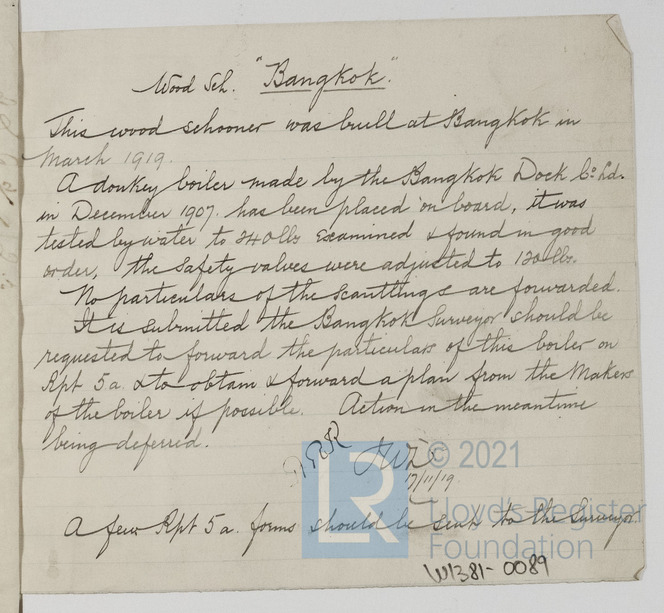 Wood Sch. "Bangkok."
This wood schooner was built at Bangkok in
March 1919.
A donkey boiler made by the Bangkok Dock Co. Ld.
in December 1907. has been placed on board, it was
tested by water to 240 lbs examined & found in good
order, the safety valves were adjusted to 120 lbs.
No particulars of the scantlings are forwarded.
It is submitted the Bangkok Surveyor should be
requested to forward the particulars of this boiler on
Rpt 5a. & to obtain & forward a plan from the Makers
of the boiler if possible. Action in the meantime
being deferred.
17/11/19
A few Rpt 5a. forms should be sent to the Surveyor
LR
© 2021
Lloyd's Register
Foundation
W1381-0089